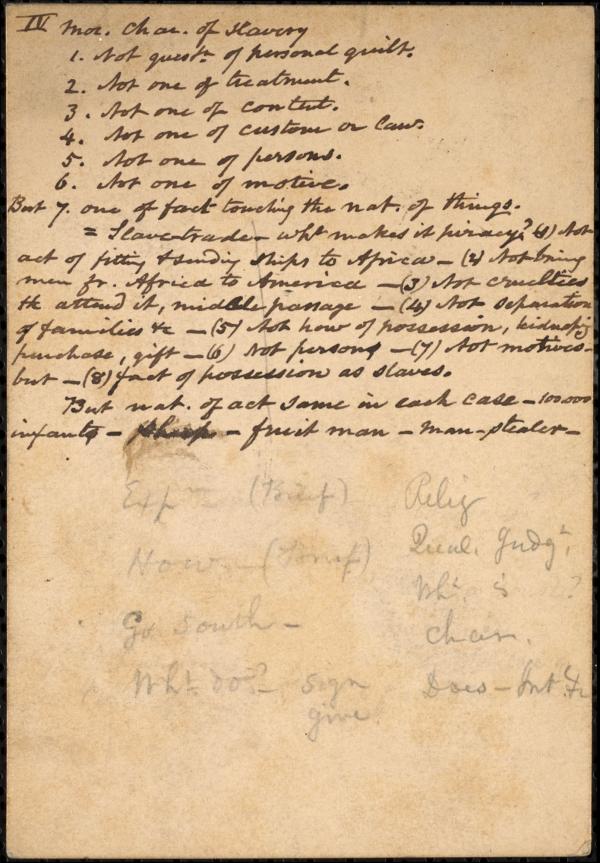 IV Mor. Char. of Slavery
1. Not questn. of personal guilt.
2. Not one of treatment.
3. Not one of
4. Not one of custom or law.
5. Not one of persons.
6. Not one of motive.
But 7. one of fact touching the nat. of things.
= Slave-trade - wht makes it piracy? (1) Not
act of fitting & sending ships to Africa - (2) Not bring
men fr. Africa to America - (3) Not cruelties
tt attend it, middle passage - (4) Not separation
of families &c - (5) Not how of possession, kidnapg
purchase, gift - (6) Not persons - (7) Not motives -
but - (8) fact of possession as slaves.
But nat. of act same in each case - 100.000
infants - sheep - fruit man - man-stealer -
(Brief) Relig
How - (Brief) Judgt.
Wht. is ?
Go South - Char.
Wht. do? - sign Does -
give